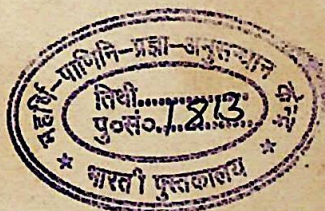 महर्षि-पाणिनि-प्रज्ञा-अनुसन्धान
तिथी..............
पु०सं० 1813
भारती पुस्तकालय